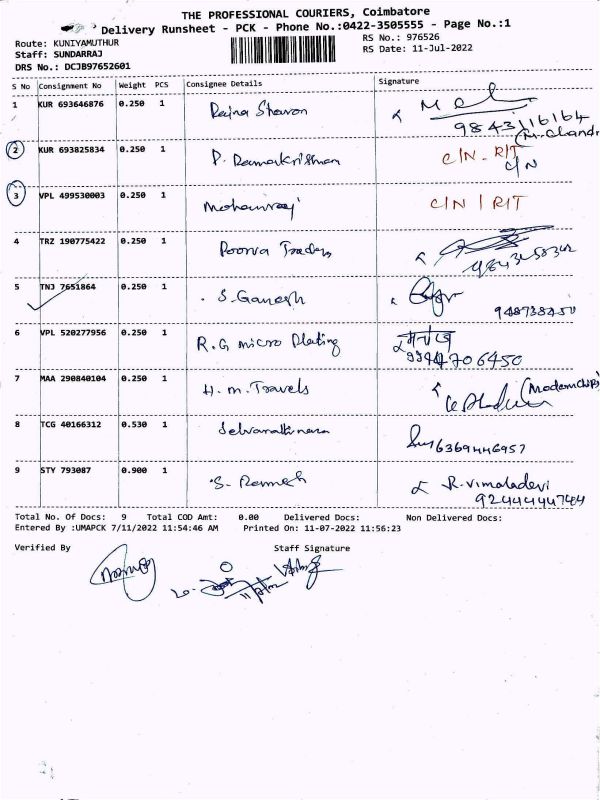 THE PROFESSIONAL COURIERS, Coimbatore
Delivery Runsheet - PCK - Phone No.:0422-3505555 - Page No.:1
Route: KUNIYAMUTHUR
RS No.: 976526
Staff: SUNDARRAJ
RS Date: 11-Jul-2022
DRS No.: DCJB97652601
S No Consignment No Weight PCS Consignee Details Signature
1 KUR 693646876 0.250 1 Rajna Shavon
9843116164
2 KUR 693825834 0.250 1 P. Ramakrishnan C/N - R/T
C/N
3 VPL 499530003 0.250 1 Mohanraj C/N / R/T
4 TRZ 190775422 0.250 1 Poorva Traders
5 TNJ 7651864 0.250 1 S. Ganesh
948738450
6 VPL 520277956 0.250 1 R.G micro Plating
9994706450
7 MAA 290840104 0.250 1 H.m.Travels
8 TCG 40166312 0.530 1 6369446957
9 STY 793087 0.900 1 S. Ramesh R.Vimaladevi
Total No. Of Docs: 9 Total COD Amt: 0.00 Delivered Docs: Non Delivered Docs:
Entered By :UMAPCK 7/11/2022 11:54:46 AM Printed On: 11-07-2022 11:56:23
Verified By Staff Signature